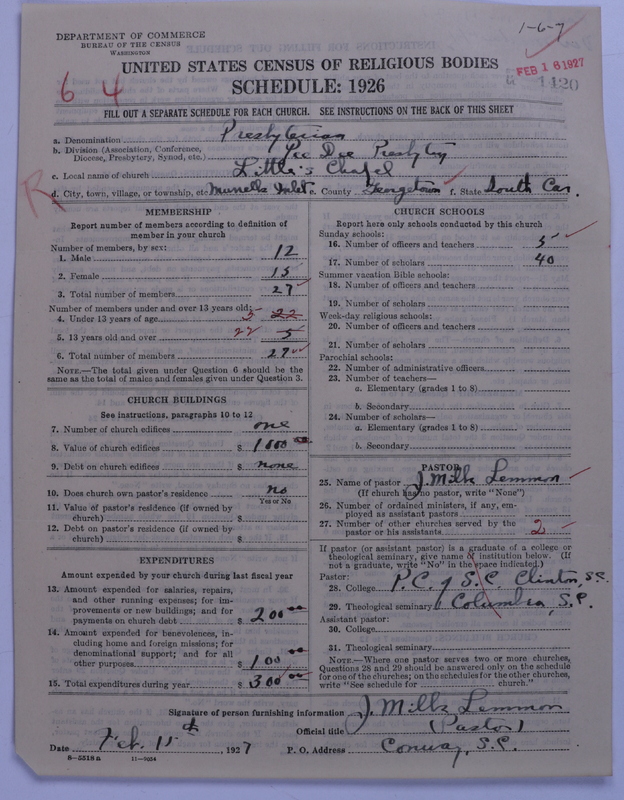 DEPARTMENT OF COMMERCE
BUREAU OF THE CENSUS
WASHINGTON
1-6-7
UNITED STATES CENSUS OF RELIGIOUS BODIES
FEB 16 1927
1420
SCHEDULE: 1926
6 4
FILL OUT A SEPARATE SCHEDULE FOR EACH CHURCH. SEE INSTRUCTIONS ON THE BACK OF THIS SHEET
a. Denomination Presbyterian
b. Division (Association, Conference, Diocese, Presbytery, Synod, etc.) Pee Dee Presbytry
c. Local name of church Little's Chapel
R
d. City, town, village, or township, etc. Murrells Inlet e. County Georgetown f. State South Car.
MEMBERSHIP
Report number of members according to definition of
member in your church
Number of members, by sex:
1. Male 12
2. Female 15
3. Total number of members 27
Number of members under and over 13 years old:
4. Under 13 years of age 5 22
5. 13 years old and over 22 5
6. Total number of members 27
NOTE.—The total given under Question 6 should be
same as the total of males and females given under Question 3.
CHURCH BUILDINGS
See instructions, paragraphs 10 to 12
7. Number of church edifices one
8. Value of church edifices $ 1000 00
9. Debt on church edifices $ none
10. Does church own pastor's residence no
Yes or No
11. Value of pastor's residence (if owned by
church) $
12. Debt on pastor's residence (if owned by
church) $
EXPENDITURES
Amount expended by your church during last fiscal year
13. Amount expended for salaries, repairs,
and other running expenses; for im-
provements or new buildings; and for
payments on church debt $ 200 00
14. Amount expended for benevolences, in-
cluding home and foreign missions; for
denominational support; and for all
other purposes $ 100 00
15. Total expenditures during year $ 300 00
CHURCH SCHOOLS
Report here only schools conducted by this church
Sunday schools:
16. Number of officers and teachers 5
17. Number of scholars 40
Summer vacation Bible schools:
18. Number of officers and teachers
19. Number of scholars
Week-day religious schools:
20. Number of officers and teachers
21. Number of scholars
Parochial schools:
22. Number of administrative officers
23. Number of teachers—
a. Elementary (grades 1 to 8)
b. Secondary
24. Number of scholars—
a. Elementary (grades 1 to 8)
b. Secondary
PASTOR
25. Name of pastor J. Milb Lemmon
(If church has no pastor, write "None")
26. Number of ordained ministers, if any, em-
ployed as assistant pastors
27. Number of other churches served by the
pastor or his assistants 2
If pastor (or assistant pastor) is a graduate of a college or
theological seminary, give name of institution below. (If
not a graduate, write "No" in the space indicated.)
Pastor:
28. College P.C. of S.C. Clinton, S.C.
29. Theological seminary Columbia, S.C.
Assistant pastor:
30. College
31. Theological seminary
NOTE.—Where one pastor serves two or more churches,
Questions 28 and 29 should be answered only on the schedule
for one of the churches; on the schedules for the other churches,
write "See schedule for church."
Signature of person furnishing information J. Milb Lemmon
Official title (Pastor)
Date Feb. 11th 1927 P. O. Address Conway, S.C.
8-5518 a 11-9054